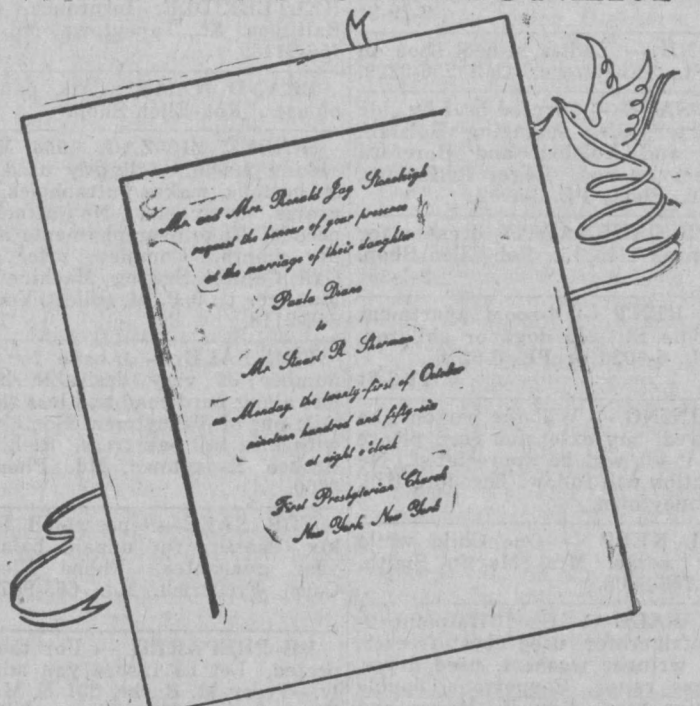 Mr. and Mrs. Ronald Jay Standigh
request the honour of your presence
at the marriage of their daughter
Paula Diane
to
Mr. Stuart R. Sherman
on Monday, the twenty-first of October
nineteen hundred and fifty-six
at eight o'clock
First Presbyterian Church
New York, New York